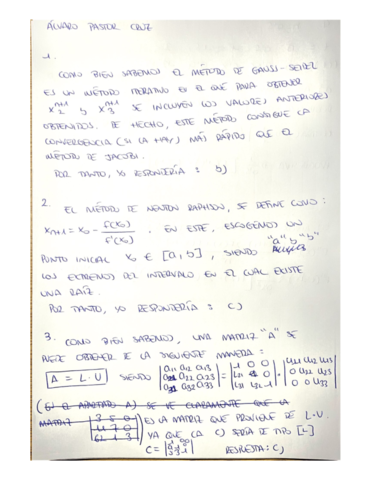 ÁLVARO PASTOR CRUZ
1.
COMO BIEN SABEMOS EL MÉTODO DE GAUSS-SEIDEL
ES UN MÉTODO ITERATIVO EN EL QUE PARA OBTENER
X₂ⁿ⁺¹ y X₃ⁿ⁺¹ SE INCLUYEN LOS VALORES ANTERIORES
OBTENIDOS. DE HECHO, ESTE MÉTODO CONSIGUE LA
CONVERGENCIA (SI LA HAY) MÁS RÁPIDO QUE EL
MÉTODO DE JACOBI.
POR TANTO, YO RESPONDERÍA : b)
2.
EL MÉTODO DE NEWTON RAPHSON, SE DEFINE COMO :
Xn+1 = X₀ - f(X₀)/f'(X₀) . EN ESTE, ESCOGEMOS UN
PUNTO INICIAL X₀ ∈ [a,b], SIENDO "a" y "b"
LOS EXTREMOS DEL INTERVALO EN EL CUAL EXISTE
UNA RAÍZ.
POR TANTO, YO RESPONDERÍA : c)
3. COMO BIEN SABEMOS, UNA MATRIZ "A" SE
PUEDE OBTENER DE LA SIGUIENTE MANERA :
A = L·U SIENDO
(EN EL APARTADO A) SE VE CLARAMENTE QUE LA
MATRIZ ES LA MATRIZ QUE PROVIENE DE L·U.
YA QUE LA C) SERÍA DE TIPO [L]
RESPUESTA: C)